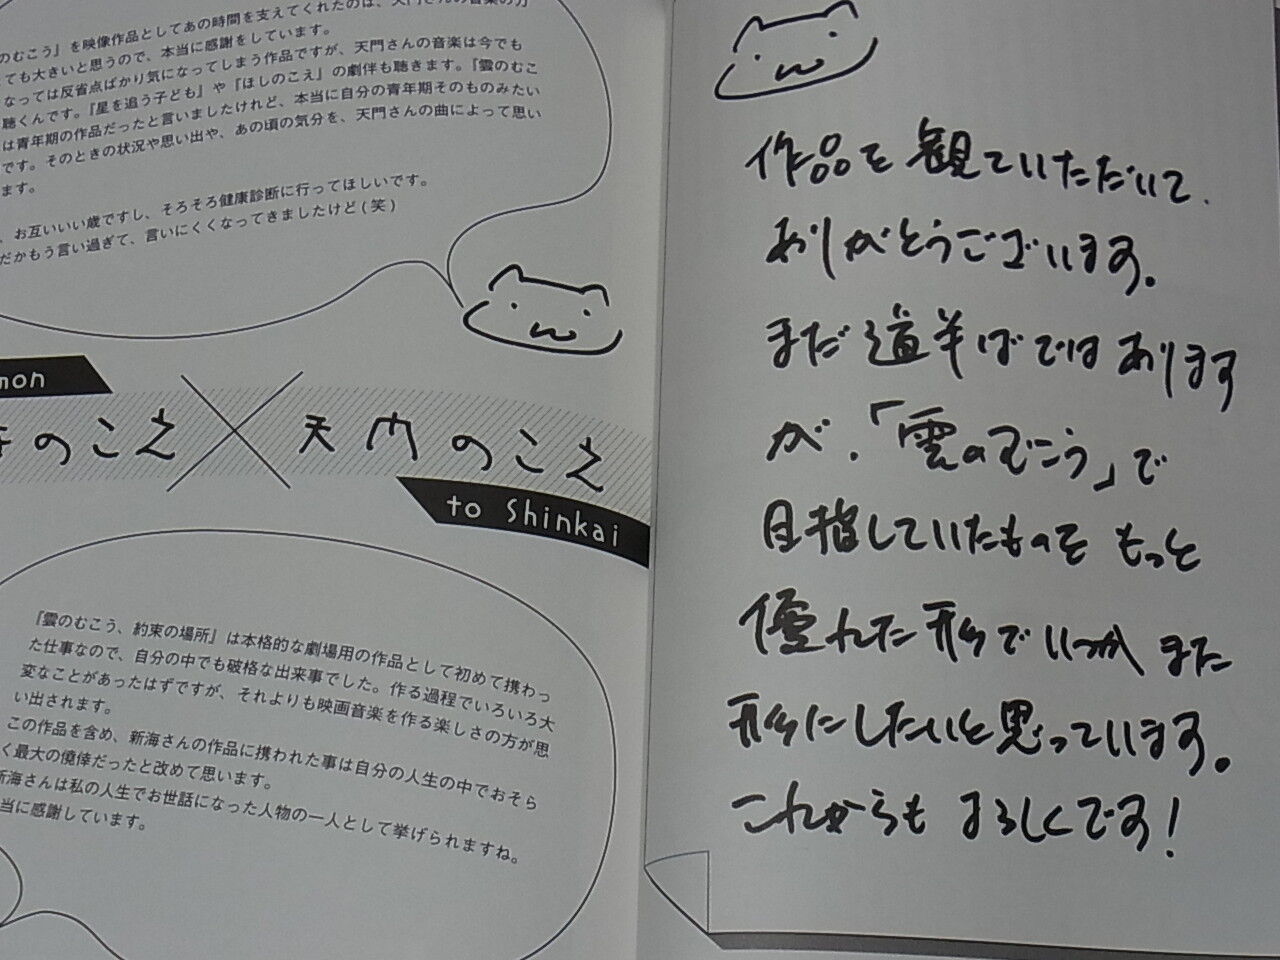 のむこう』を映像作品としてあの時間を支えてくれたのは、天門さんの音楽の力
ても大きいと思うので、本当に感謝をしています。
なっては反省点ばかり気になってしまう作品ですが、天門さんの音楽は今でも
聴くんです。『星を追う子ども』や『ほしのこえ』の劇伴も聴きます。『雲のむこ
は青年期の作品だったと言いましたけれど、本当に自分の青年期そのものみたい
です。そのときの状況や思い出や、あの頃の気分を、天門さんの曲によって思い
ます。
、お互いいい歳ですし、そろそろ健康診断に行ってほしいです。
だかもう言い過ぎて、言いにくくなってきましたけど(笑)
mon
のこえ×天門のこえ
to Shinkai
『雲のむこう、約束の場所』は本格的な劇場用の作品として初めて携わっ
た仕事なので、自分の中でも破格な出来事でした。作る過程でいろいろ大
変なことがあったはずですが、それよりも映画音楽を作る楽しさの方が思
い出されます。
この作品を含め、新海さんの作品に携われた事は自分の人生の中でおそら
く最大の僥倖だったと改めて思います。
新海さんは私の人生でお世話になった人物の一人として挙げられますね。
当に感謝しています。
作品を観ていただいて、
ありがとうございます。
まだ道半ばではあります
が、「雲のむこう」で
目指していたものをもっと
優れた形でいつかまた
形にしたいと思っています。
これからもよろしくです!